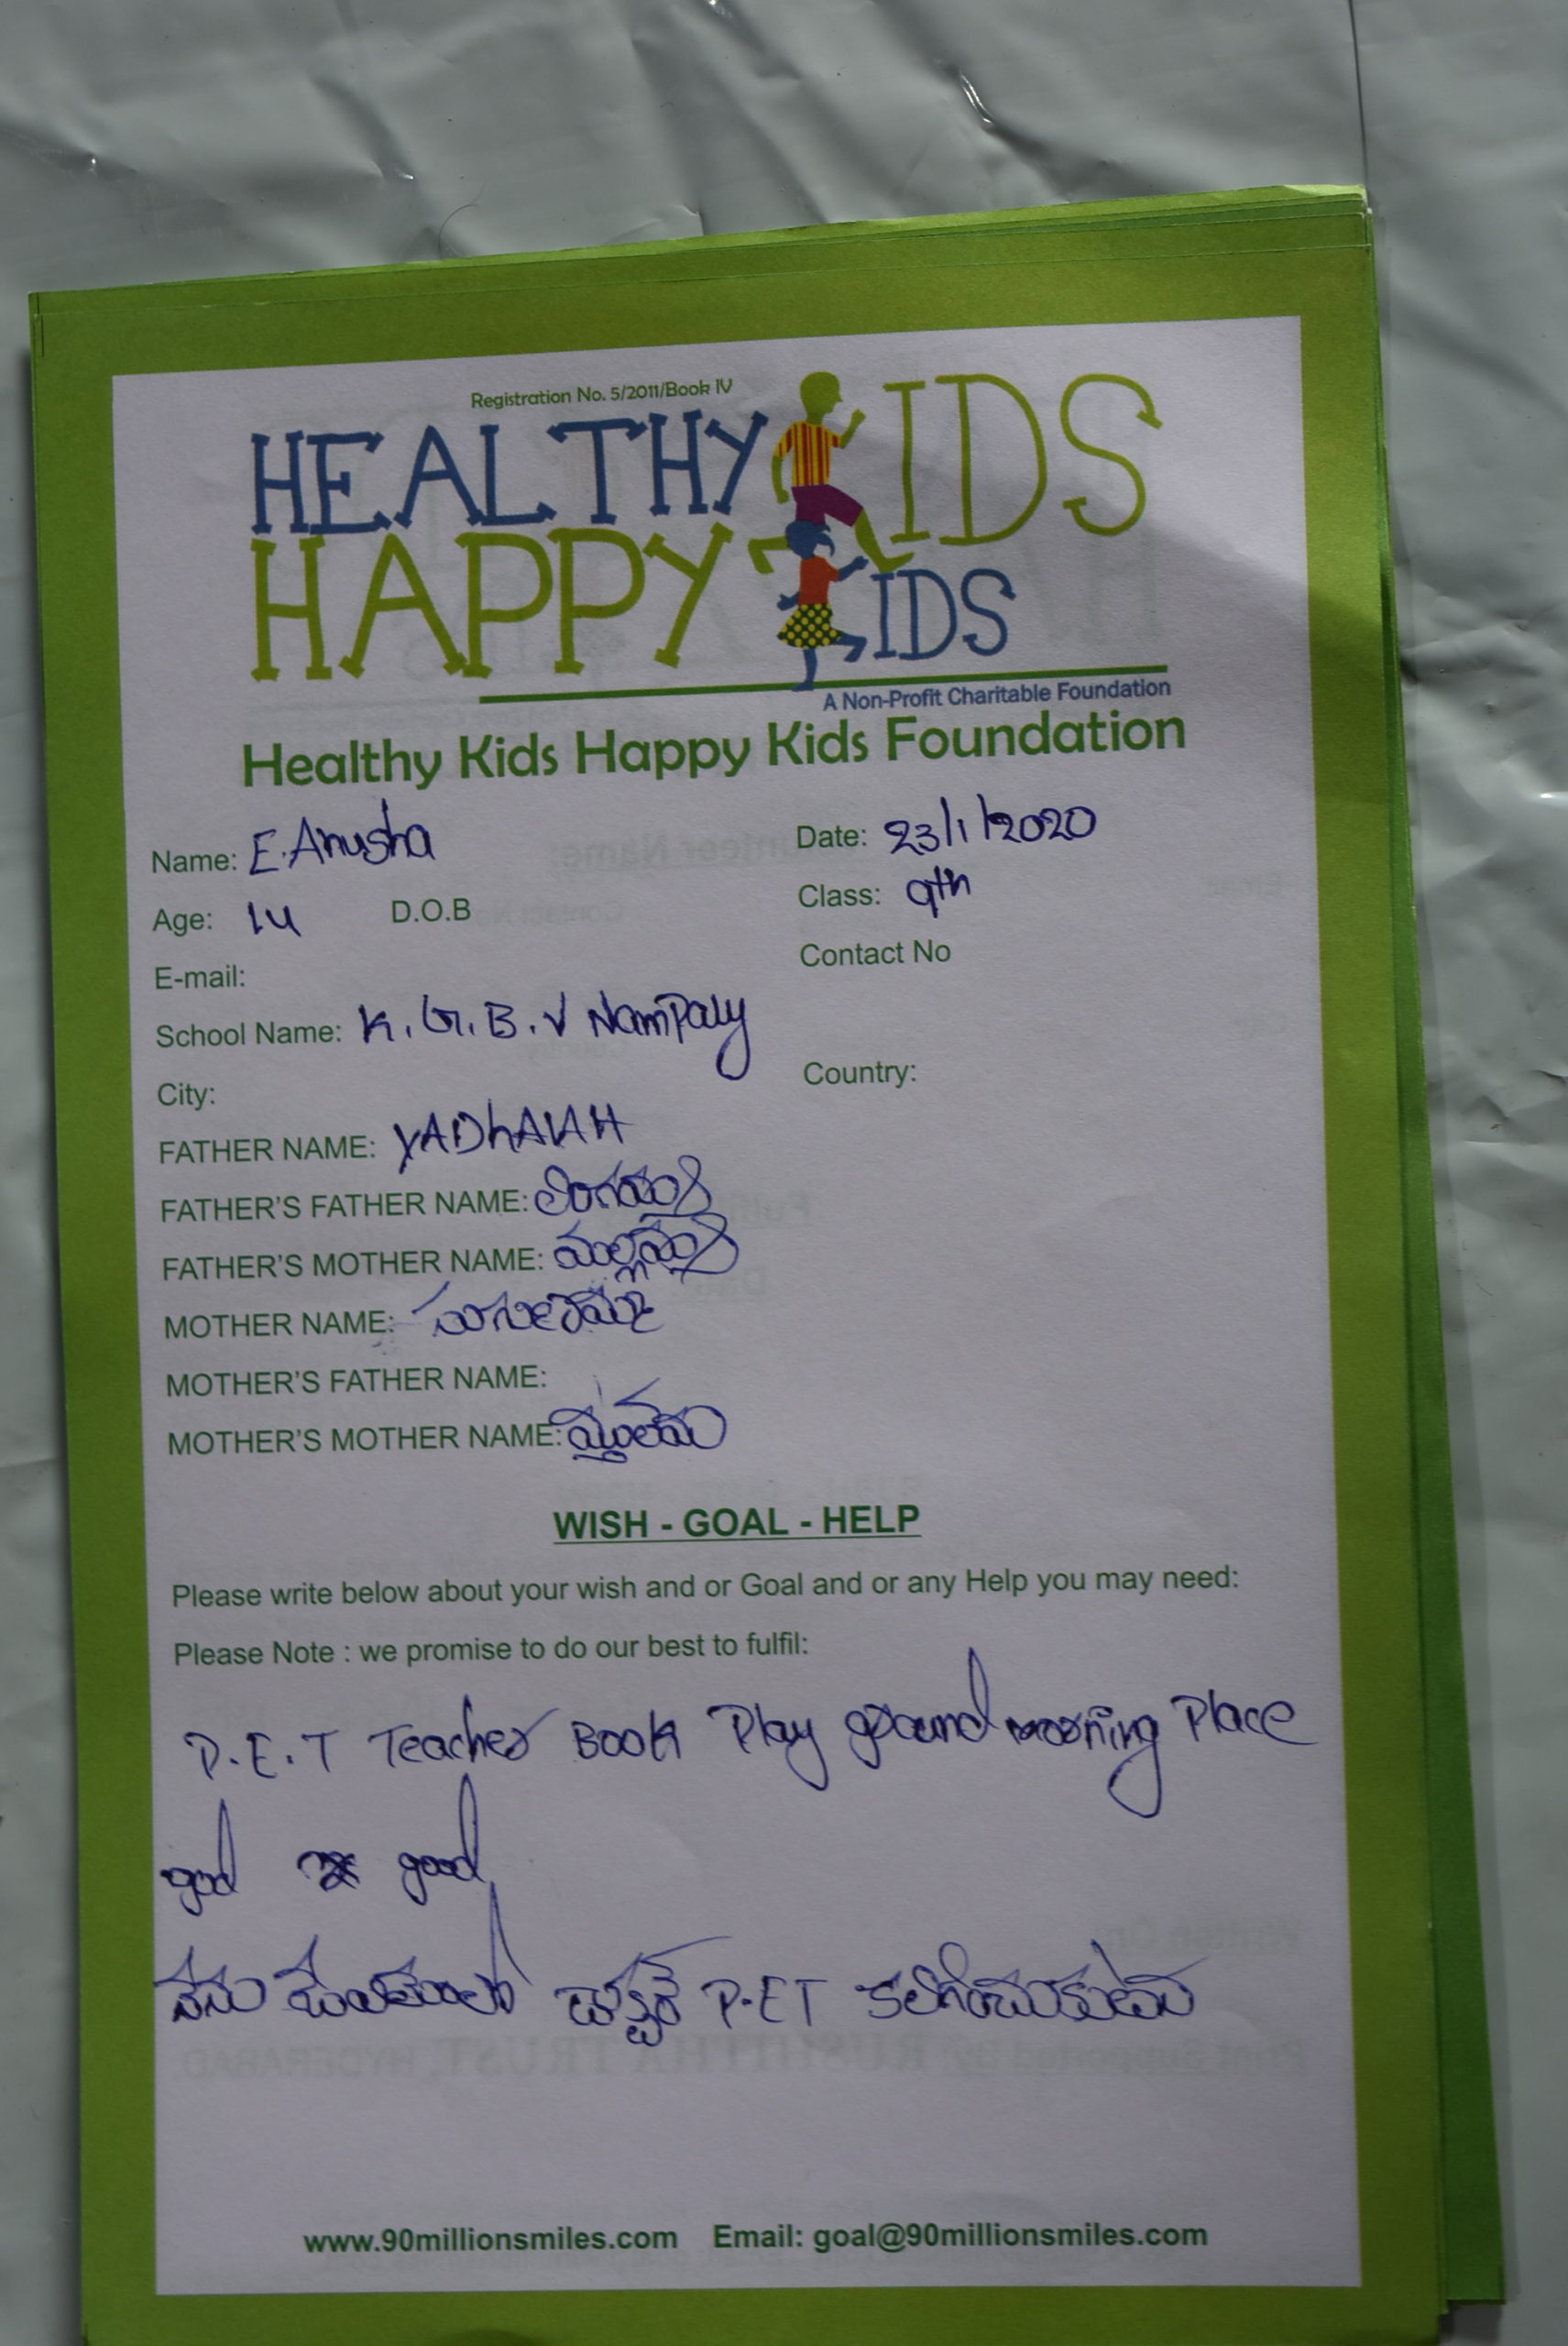 Registration No. 5/2011/Book IV
HEALTHY KIDS
HAPPY KIDS
A Non-Profit Charitable Foundation
Healthy Kids Happy Kids Foundation
Name: E.Anusha Date: 23/1/2020
Age: 14 D.O.B Class: 9th
E-mail: Contact No
School Name: K.G.B.V Nampally
City: Country:
FATHER NAME: YADhAIAH
FATHER'S FATHER NAME:
FATHER'S MOTHER NAME:
MOTHER NAME:
MOTHER'S FATHER NAME:
MOTHER'S MOTHER NAME:
WISH - GOAL - HELP
Please write below about your wish and or Goal and or any Help you may need:
Please Note : we promise to do our best to fulfil:
P.E.T Teacher Book Play ground Place
god good
నేను P.ET
www.90millionsmiles.com Email: goal@90millionsmiles.com